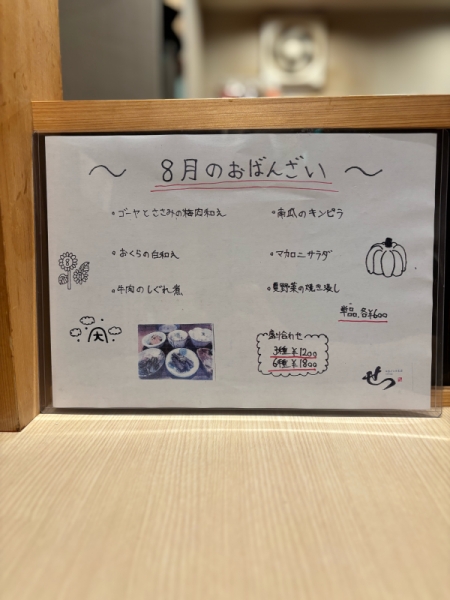 〜 8月のおばんざい 〜
。ゴーヤとささみの梅肉和え
。南瓜のキンピラ
。おくらの白和え
。マカロニサラダ
。牛肉のしぐれ煮
。夏野菜の焼き浸し
単品 各¥600
大
盛り合わせ
3種 ¥1200
6種 ¥1800
せつ